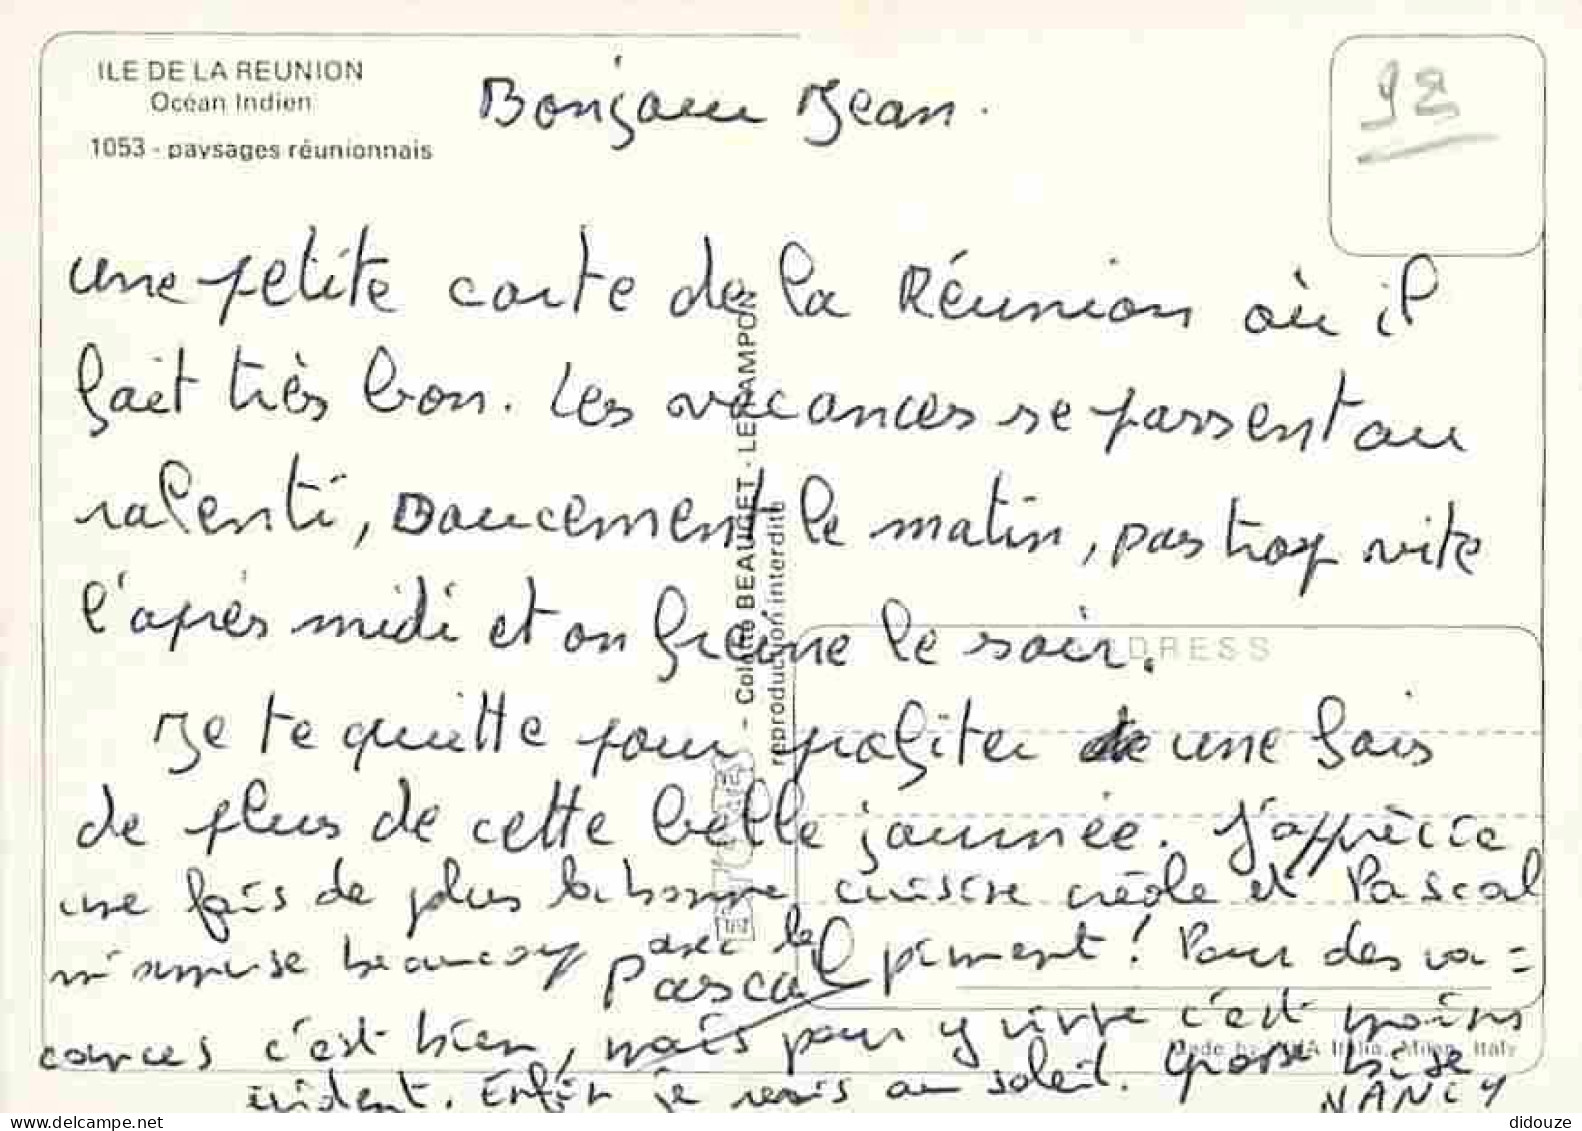 ILE DE LA REUNION
Océan Indien
1053 - paysages réunionnais
92
Bonjour Jean.
une petite carte de la Réunion où il
fait très bon. Les vacances se passent au
ralenti, Doucement le matin, pas trop vite
l'après midi et on freine le soir.
Je te quitte pour profiter de une fois
de plus de cette belle journée. J'apprécie
une fois de plus la bonne cuisine créole et Pascal
m'amuse beaucoup avec le piment ! Pour des va=
Pascal
cances c'est bien, mais pour y vivre c'est moins
évident. Enfin je suis au soleil. Grosse bise
NANCY
- Colette BEAUGET - LE TAMPON
reproduction interdite
ADDRESS
Made by Italia, Milan, Italy
didouze